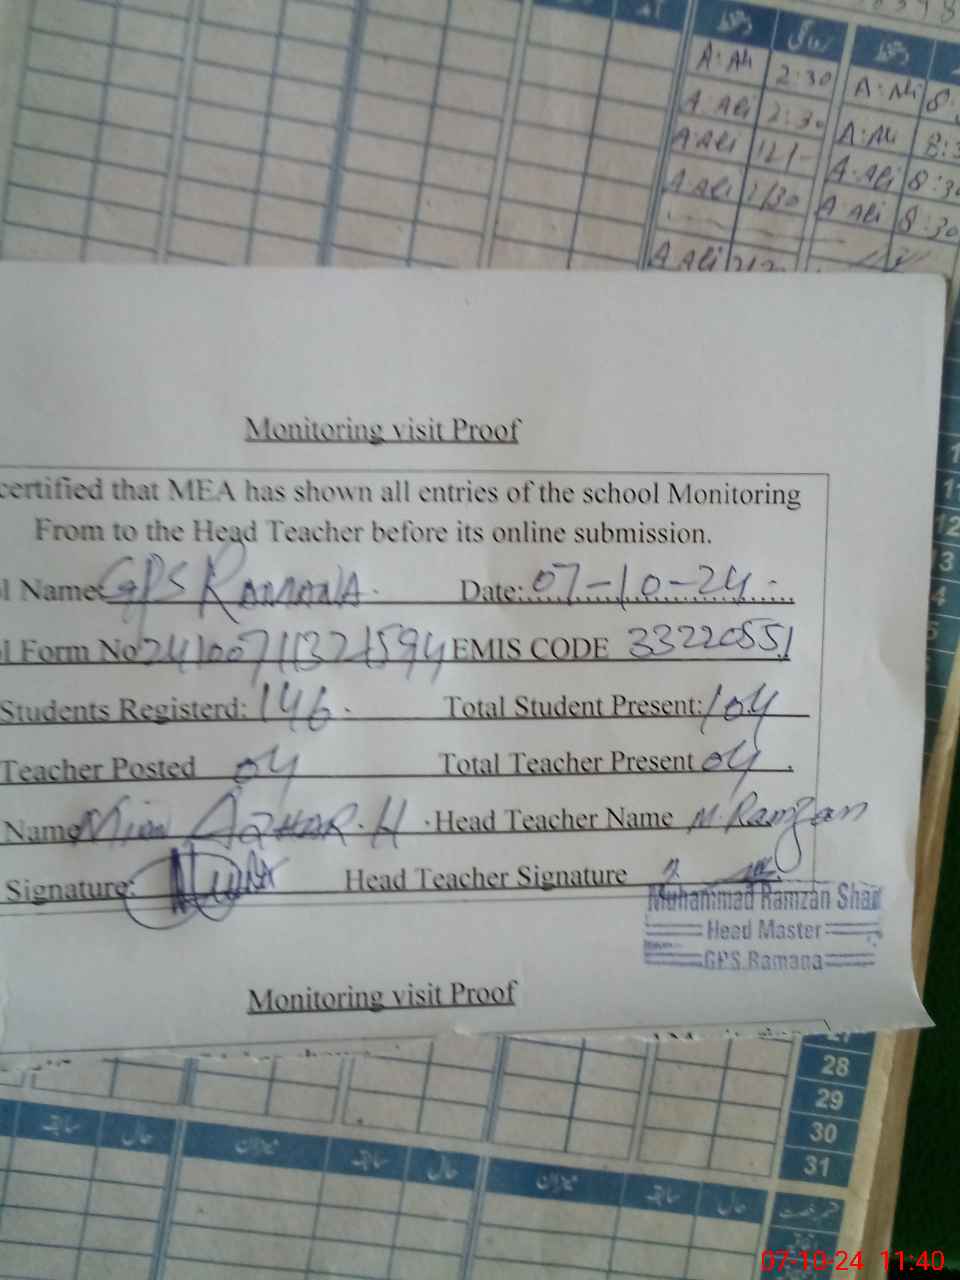 دستخط روانگی دستخط
A. Ali 2:30 A. Ali 8:
A. Ali 2:30 A. Ali 8:3
A Ali 12/- A. Ali 8:30
A Ali 1/30 A Ali 8:30
A Ali
Monitoring visit Proof
certified that MEA has shown all entries of the school Monitoring
From to the Head Teacher before its online submission.
l Name: GPS RAMANA. Date: 07-10-24
l Form No EMIS CODE 33220551
Students Registerd: 146. Total Student Present: 104
Teacher Posted 04 Total Teacher Present 04.
Name Mian AZHAR. H. Head Teacher Name M. Ramzan
Signature: Head Teacher Signature
Muhammad Ramzan Shad
Head Master
GPS Ramana
Monitoring visit Proof
11
12
13
4
5
6
27
28
29
30
31
سابقہ حال میزان سابقہ حال میزان سابقہ حال
07-10-24 11:40